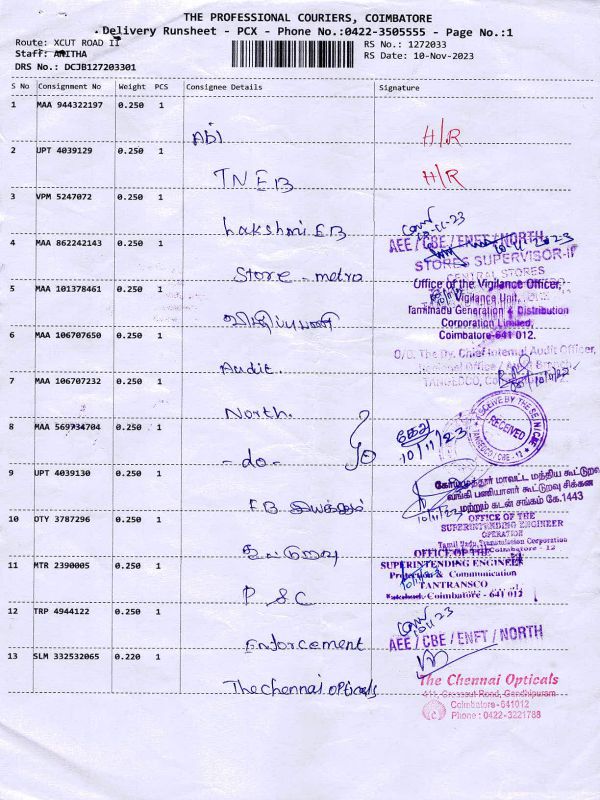 THE PROFESSIONAL COURIERS, COIMBATORE
Delivery Runsheet - PCX - Phone No.:0422-3505555 - Page No.:1
Route: XCUT ROAD II
RS No.: 1272033
Staff: ANITHA
RS Date: 10-Nov-2023
DRS No.: DCJB127203301
S No Consignment No Weight PCS Consignee Details Signature
1 MAA 944322197 0.250 1
Abi H/R
2 UPT 4039129 0.250 1
TNEB H/R
3 VPM 5247072 0.250 1
Lakshmi EB
10-11-23
AEE / CBE / ENFT / NORTH
4 MAA 862242143 0.250 1
STORES SUPERVISOR-II
CENTRAL STORES
Store - metro
5 MAA 101378461 0.250 1
Office of the Vigilance Officer,
Vigilance Unit,
Tamilnadu Generation & Distribution
Corporation Limited,
Coimbatore-641 012.
விழிப்புபணி
6 MAA 106707650 0.250 1
O/O. The Dy. Chief Internal Audit Officer,
Audit.
7 MAA 106707232 0.250 1
TANGEDCO,
North.
RECEIVED
TANGEDCO / CBE - 12
8 MAA 569734704 0.250 1
10/11/23
-do-
9 UPT 4039130 0.250 1
கோயமுத்தூர் மாவட்ட மத்திய கூட்டுறவு
வங்கி பணியாளர் கூட்டுறவு சிக்கன
மற்றும் கடன் சங்கம் கே.1443
EB இயக்கம்
10 OTY 3787296 0.250 1
OFFICE OF THE
SUPERINTENDING ENGINEER
OPERATION
கூட்டுறவு
11 MTR 2390005 0.250 1
OFFICE OF THE
SUPERINTENDING ENGINEER
Protection & Communication
TANTRANSCO
Coimbatore - 641 012
P S C
12 TRP 4944122 0.250 1
10/11/23
Enforcement
AEE / CBE / ENFT / NORTH
13 SLM 332532065 0.220 1
The chennai opticals
The Chennai Opticals
411, Crosscut Road, Gandhipuram
Coimbatore-641012
Phone : 0422-3221788